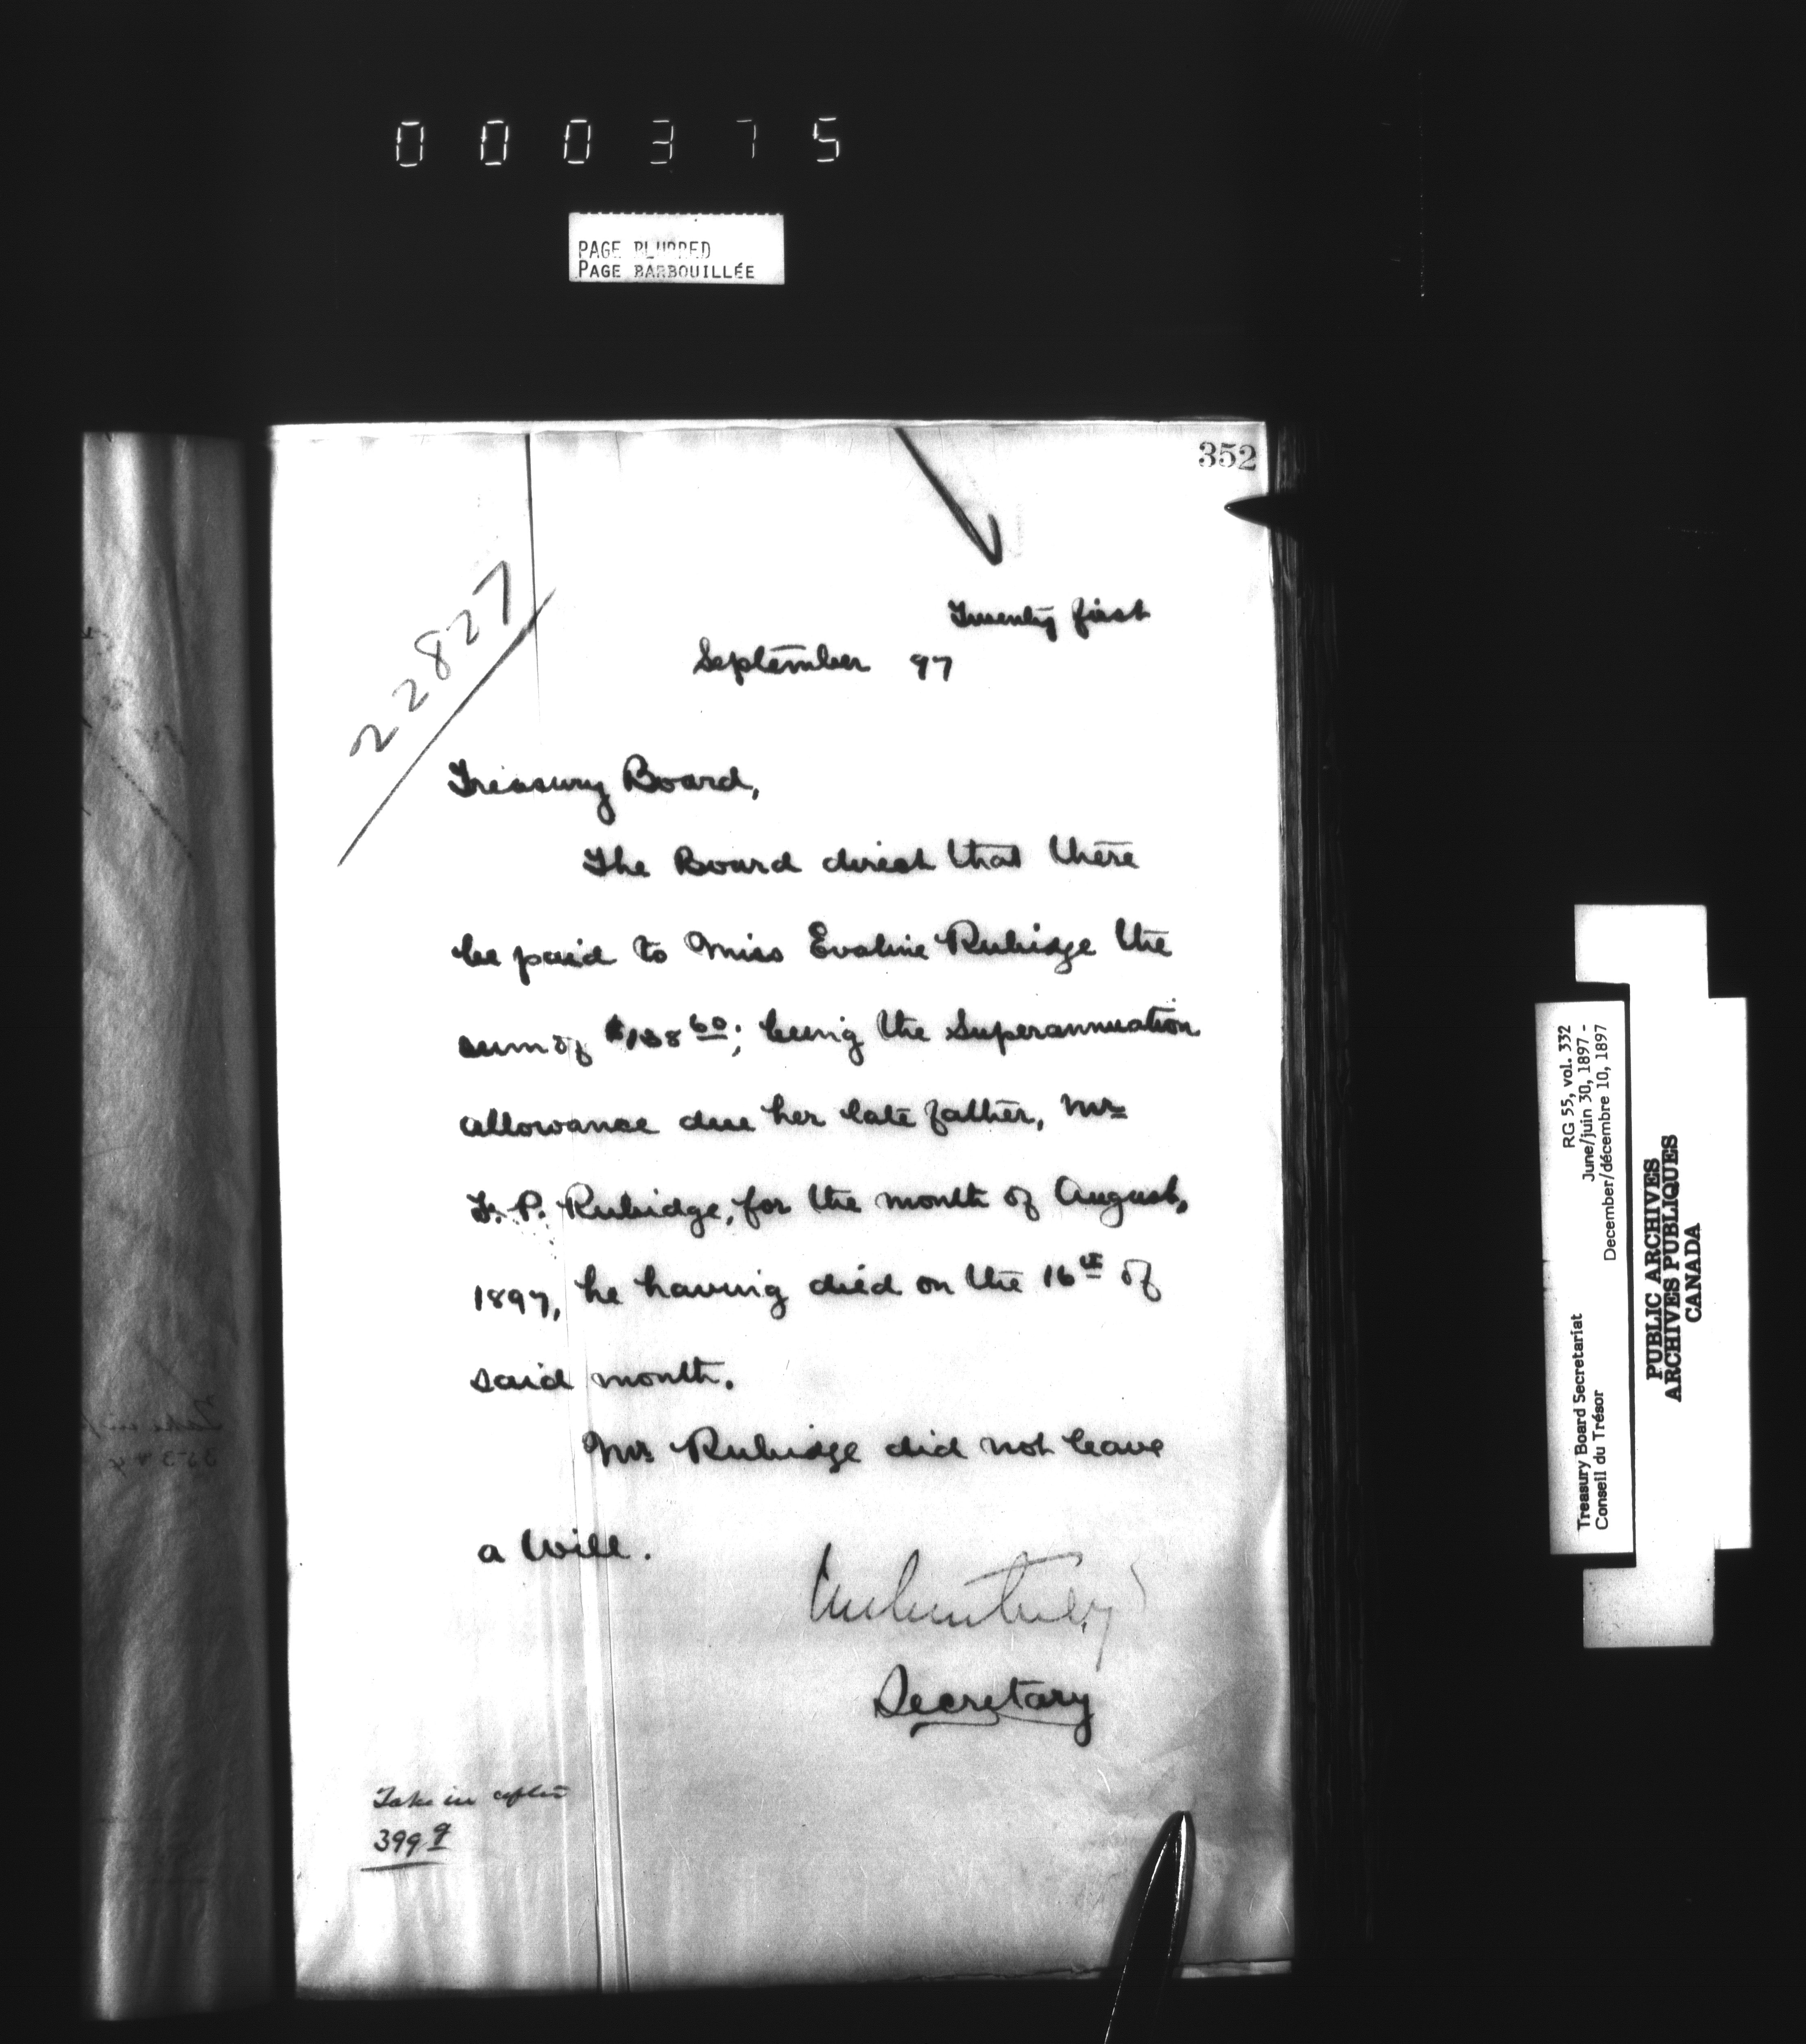 000375
PAGE BLURRED
PAGE BARBOUILLÉE
352
22827
Twenty first
September 97
Treasury Board,
The Board direct that there
be paid to Miss Evaline Rubidge the
sum of $138 60; being the Superannuation
allowance due her late father, Mr
F. P. Rubidge, for the month of August,
1897, he having died on the 16th of
said month.
Mr Rubidge did not leave
a Will.
Secretary
Take in after
399 9
RG 55, vol. 332
June/juin 30, 1897 -
December/décembre 10, 1897
Treasury Board Secretariat
Conseil du Trésor
PUBLIC ARCHIVES
ARCHIVES PUBLIQUES
CANADA